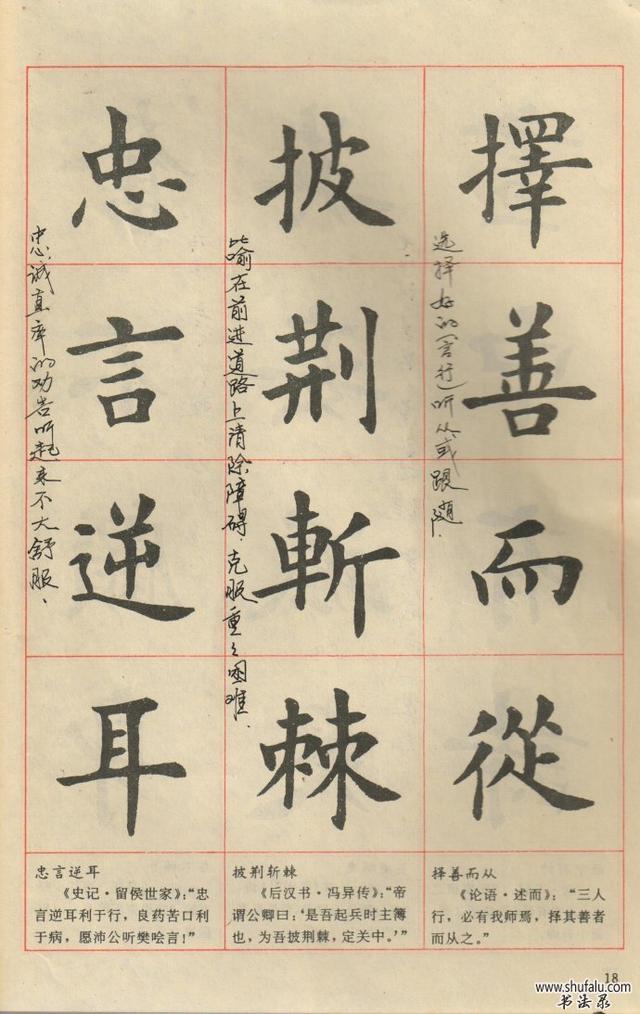 擇善而從
选择好的(言行)听从或跟随.
披荆斬棘
比喻在前进道路上清除障碍.克服重々困难.
忠言逆耳
忠诚直率的劝告听起来不大舒服.
择善而从
《论语·述而》:“三人
行,必有我师焉,择其善者
而从之。”
披荆斩棘
《后汉书·冯异传》:“帝
谓公卿曰:‘是吾起兵时主簿
也,为吾披荆棘,定关中。’”
忠言逆耳
《史记·留侯世家》:“忠
言逆耳利于行,良药苦口利
于病,愿沛公听樊哙言!”
18
www.shufalu.com
书法录